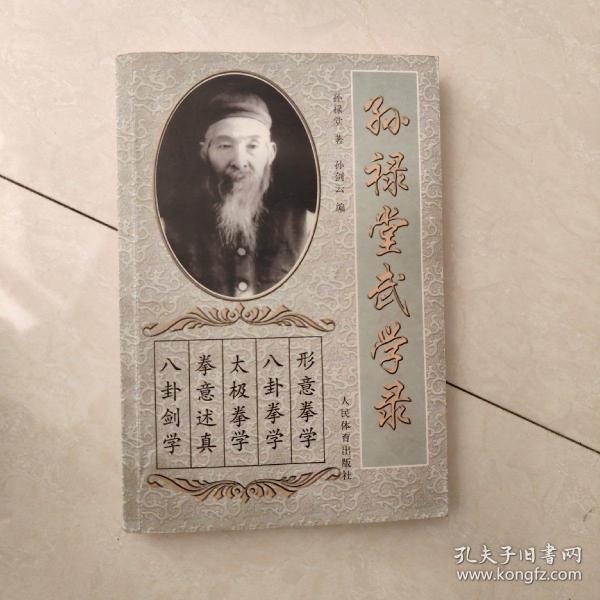 孙禄堂武学录
孙禄堂 著 孙剑云 编
形意拳学
八卦拳学
太极拳学
拳意述真
八卦剑学
人民体育出版社
孔夫子旧书网
www.kongfz.com